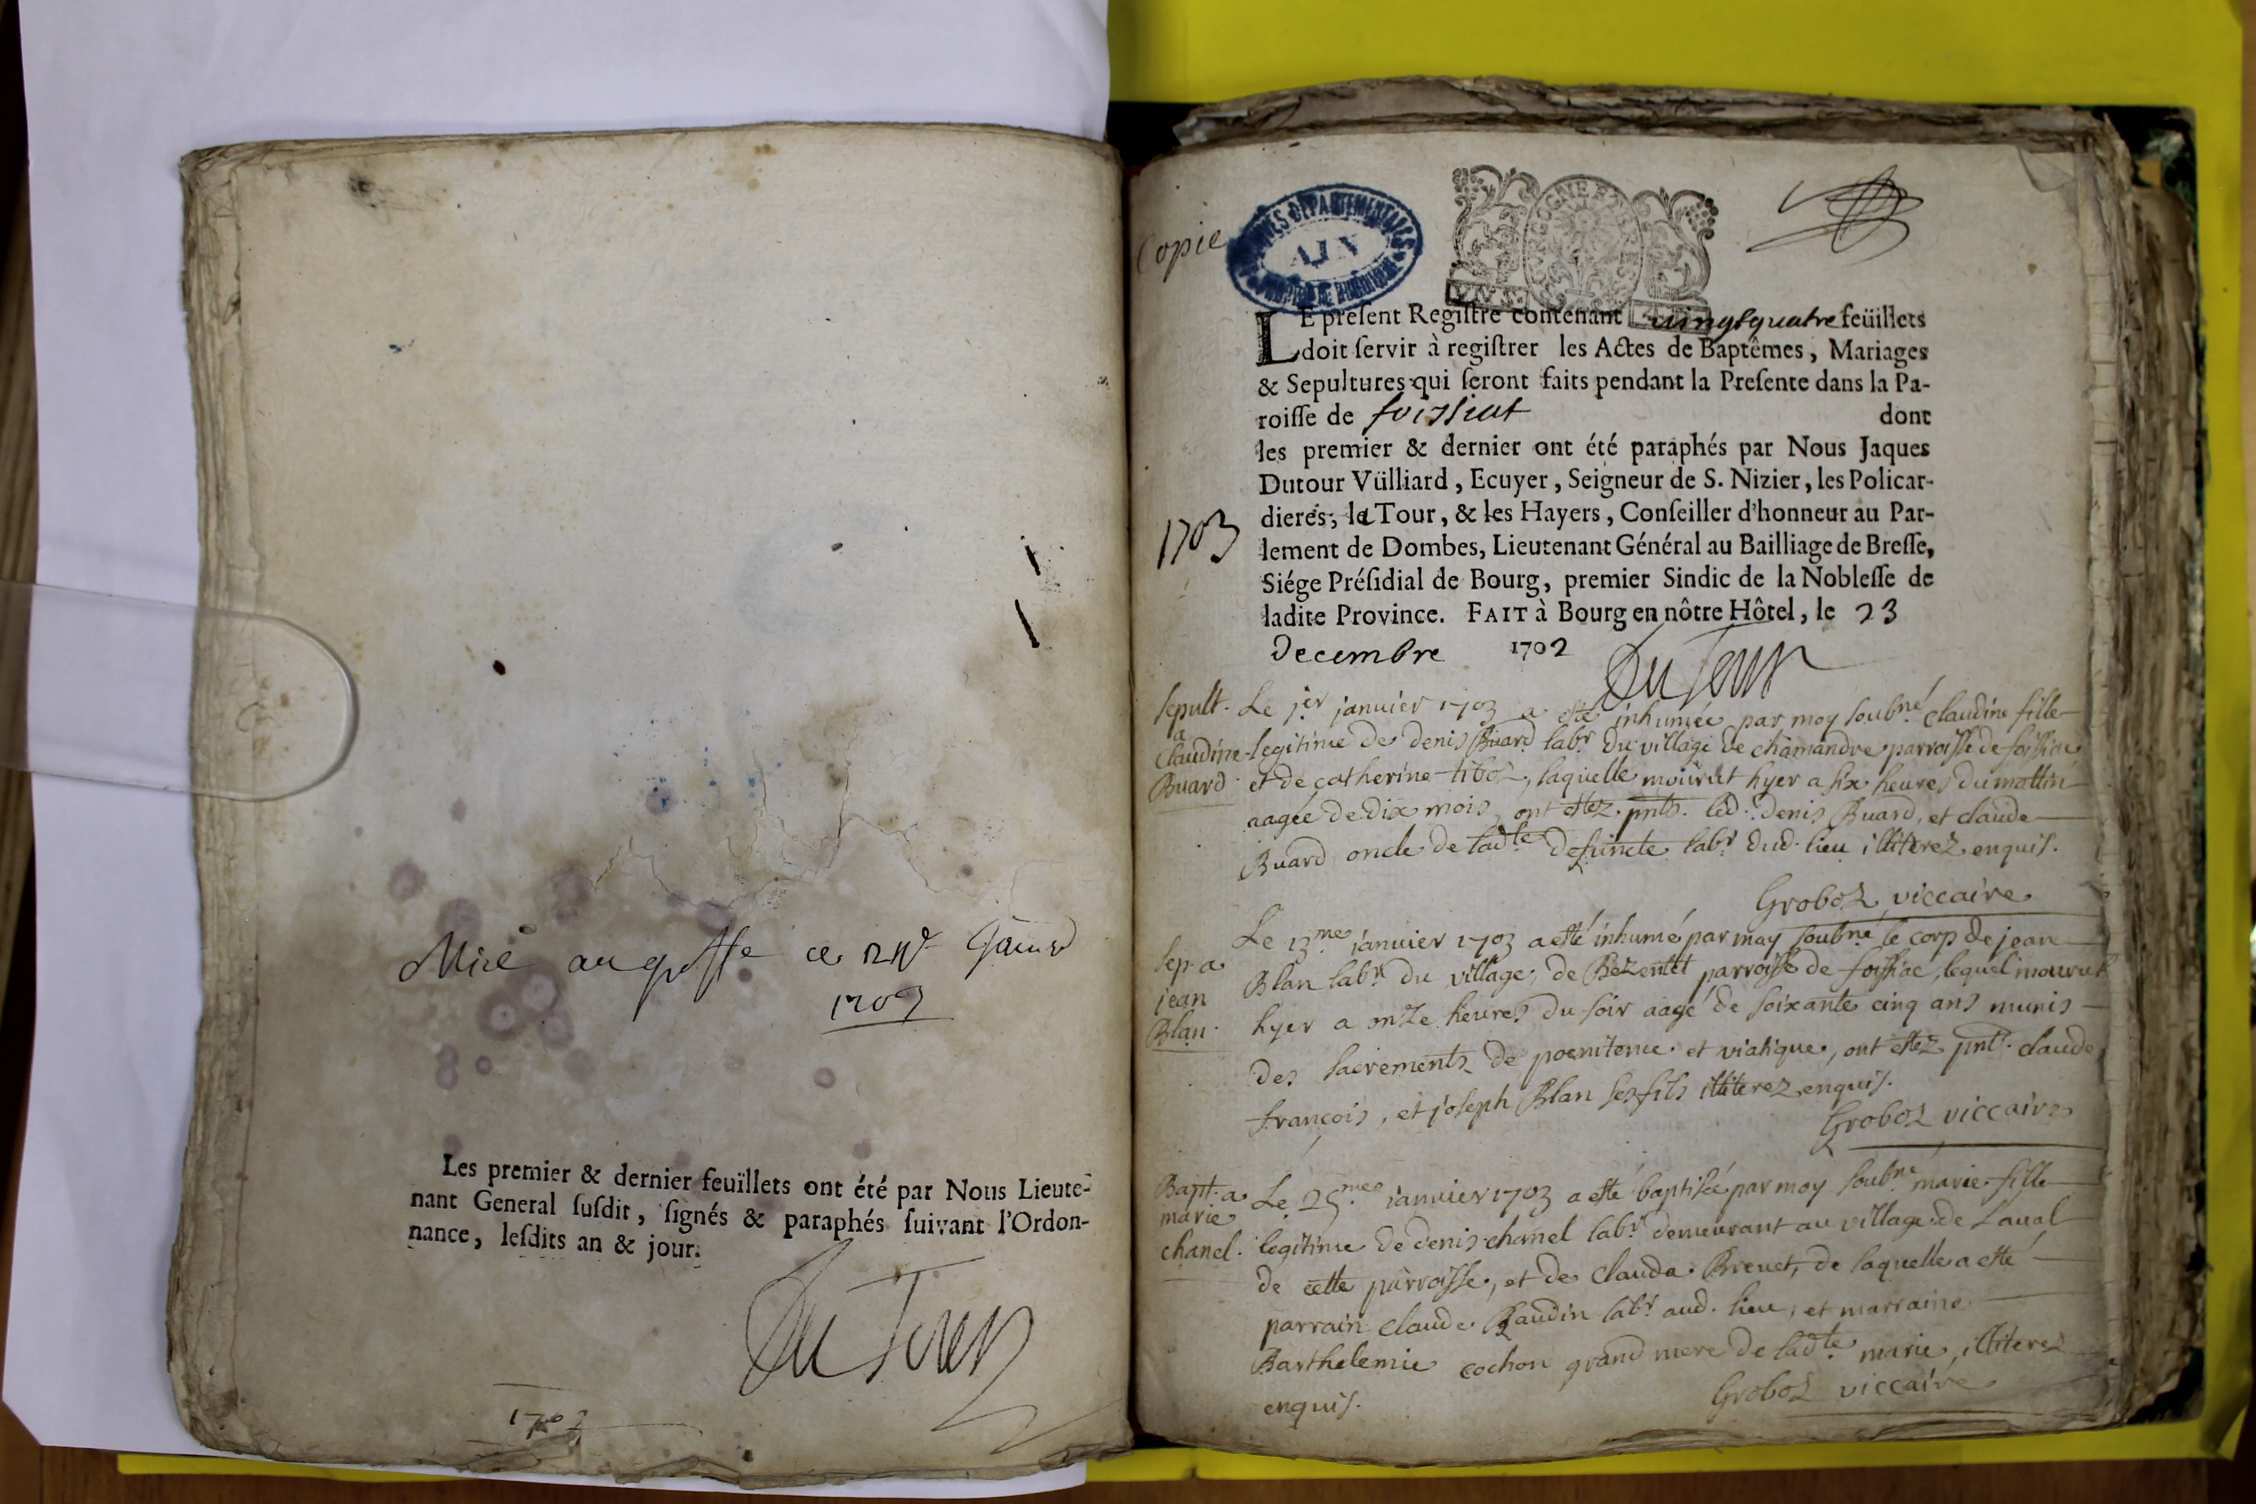 Mis au greffe ce janv
1703
Les premier & dernier feuïllets ont été par Nous Lieute-
nant General susdit, signés & paraphés suivant l'Ordon-
nance, lesdits an & jour.
Du Tour
1702
Copie
ARCHIVES DEPARTEMENTALES
AIN
LE present Registre contenant vingt quatre feüillets
doit servir à registrer les Actes de Baptêmes, Mariages
& Sepultures qui seront faits pendant la Presente dans la Pa-
roisse de foissiat dont
les premier & dernier ont été paraphés par Nous Jaques
Dutour Vülliard, Ecuyer, Seigneur de S. Nizier, les Policar-
dieres, la Tour, & les Hayers, Conseiller d'honneur au Par-
1703
lement de Dombes, Lieutenant Général au Bailliage de Bresse,
Siége Présidial de Bourg, premier Sindic de la Noblesse de
ladite Province. FAIT à Bourg en nôtre Hôtel, le 23
decembre 1702
Du Tour
sepult.
a
claudine
Buard
Le jer janvier 1703 a esté inhumée par moy soubné claudine fille
legitime de denis Buard labr du village de chamandre parroisse de foissiac
et de catherine tiboz, laquelle mourut hyer a six heures du mattin
aagée de dix mois, ont estez pnts. led. denis Buard, et claude
Buard oncle de ladte defuncte labr dud. lieu illiterez enquis.
Groboz viccaire
sep. a
jean
Blan.
Le 13me janvier 1703 a esté inhumé par moy soubné le corp de jean
Blan labr du village de Bezentet parroisse de foissiac, lequel mourut
hyer a onze heures du soir aagé de soixante cinq ans munis
des sacrements de poenitence et viatique, ont estez pnts. claude
françois, et joseph Blan ses fils illiterez enquis.
Groboz viccaire
Bapt. a
marie
chanel.
Le 25me janvier 1703 a esté baptisée par moy soubné marie fille
legitime de denis chanel labr demeurant au village de Laual
de cette parroisse, et de clauda Brevet, de laquelle a esté
parrain claude Baudin labr aud. lieu, et marraine
Barthelemie cochon grand mere de ladte marie, illiterez
enquis.
Groboz viccaire